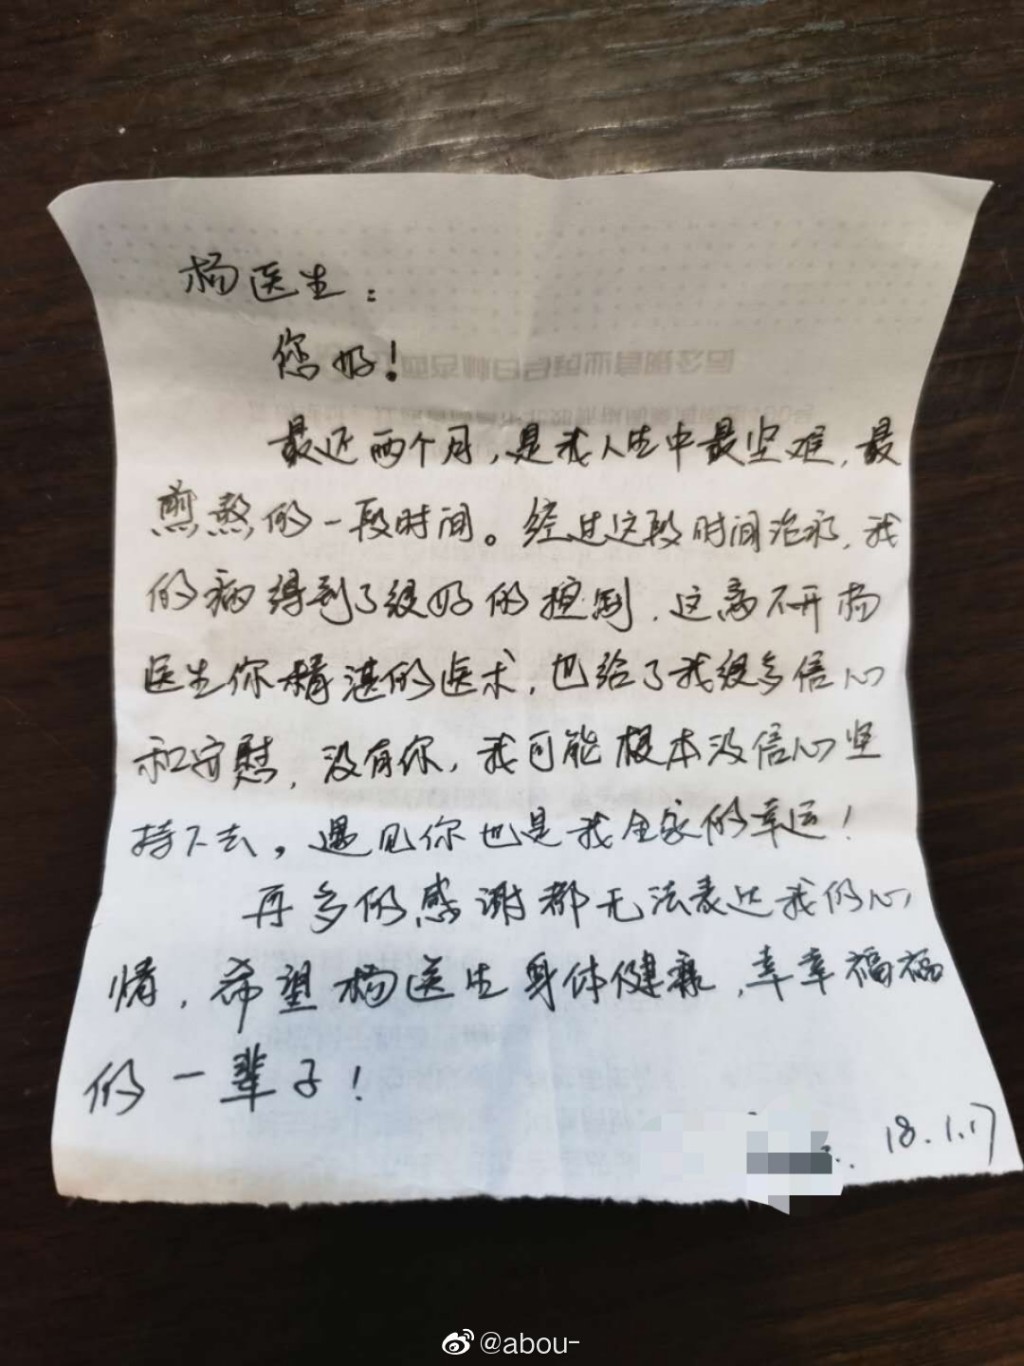 杨医生：
您好！
最近两个月，是我人生中最坚难，最
煎熬的一段时间。经过这段时间治疗，我
的病得到了很好的控制，这离不开杨
医生你精湛的医术，也给了我很多信心
和安慰，没有你，我可能根本没信心坚
持下去。遇见你也是我全家的幸运！
再多的感谢都无法表达我的心
情，希望杨医生身体健康，幸幸福福
的一辈子！
18.1.17
@abou-